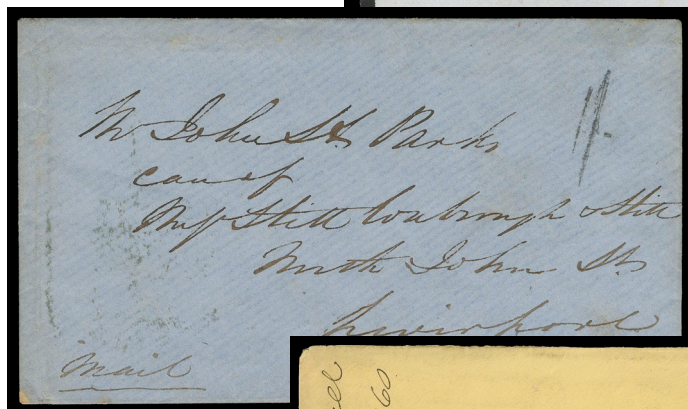 Mr John St Parks
care of
Messrs Stitt Coubrough & Stitt
North John St
Liverpool
Mail
60